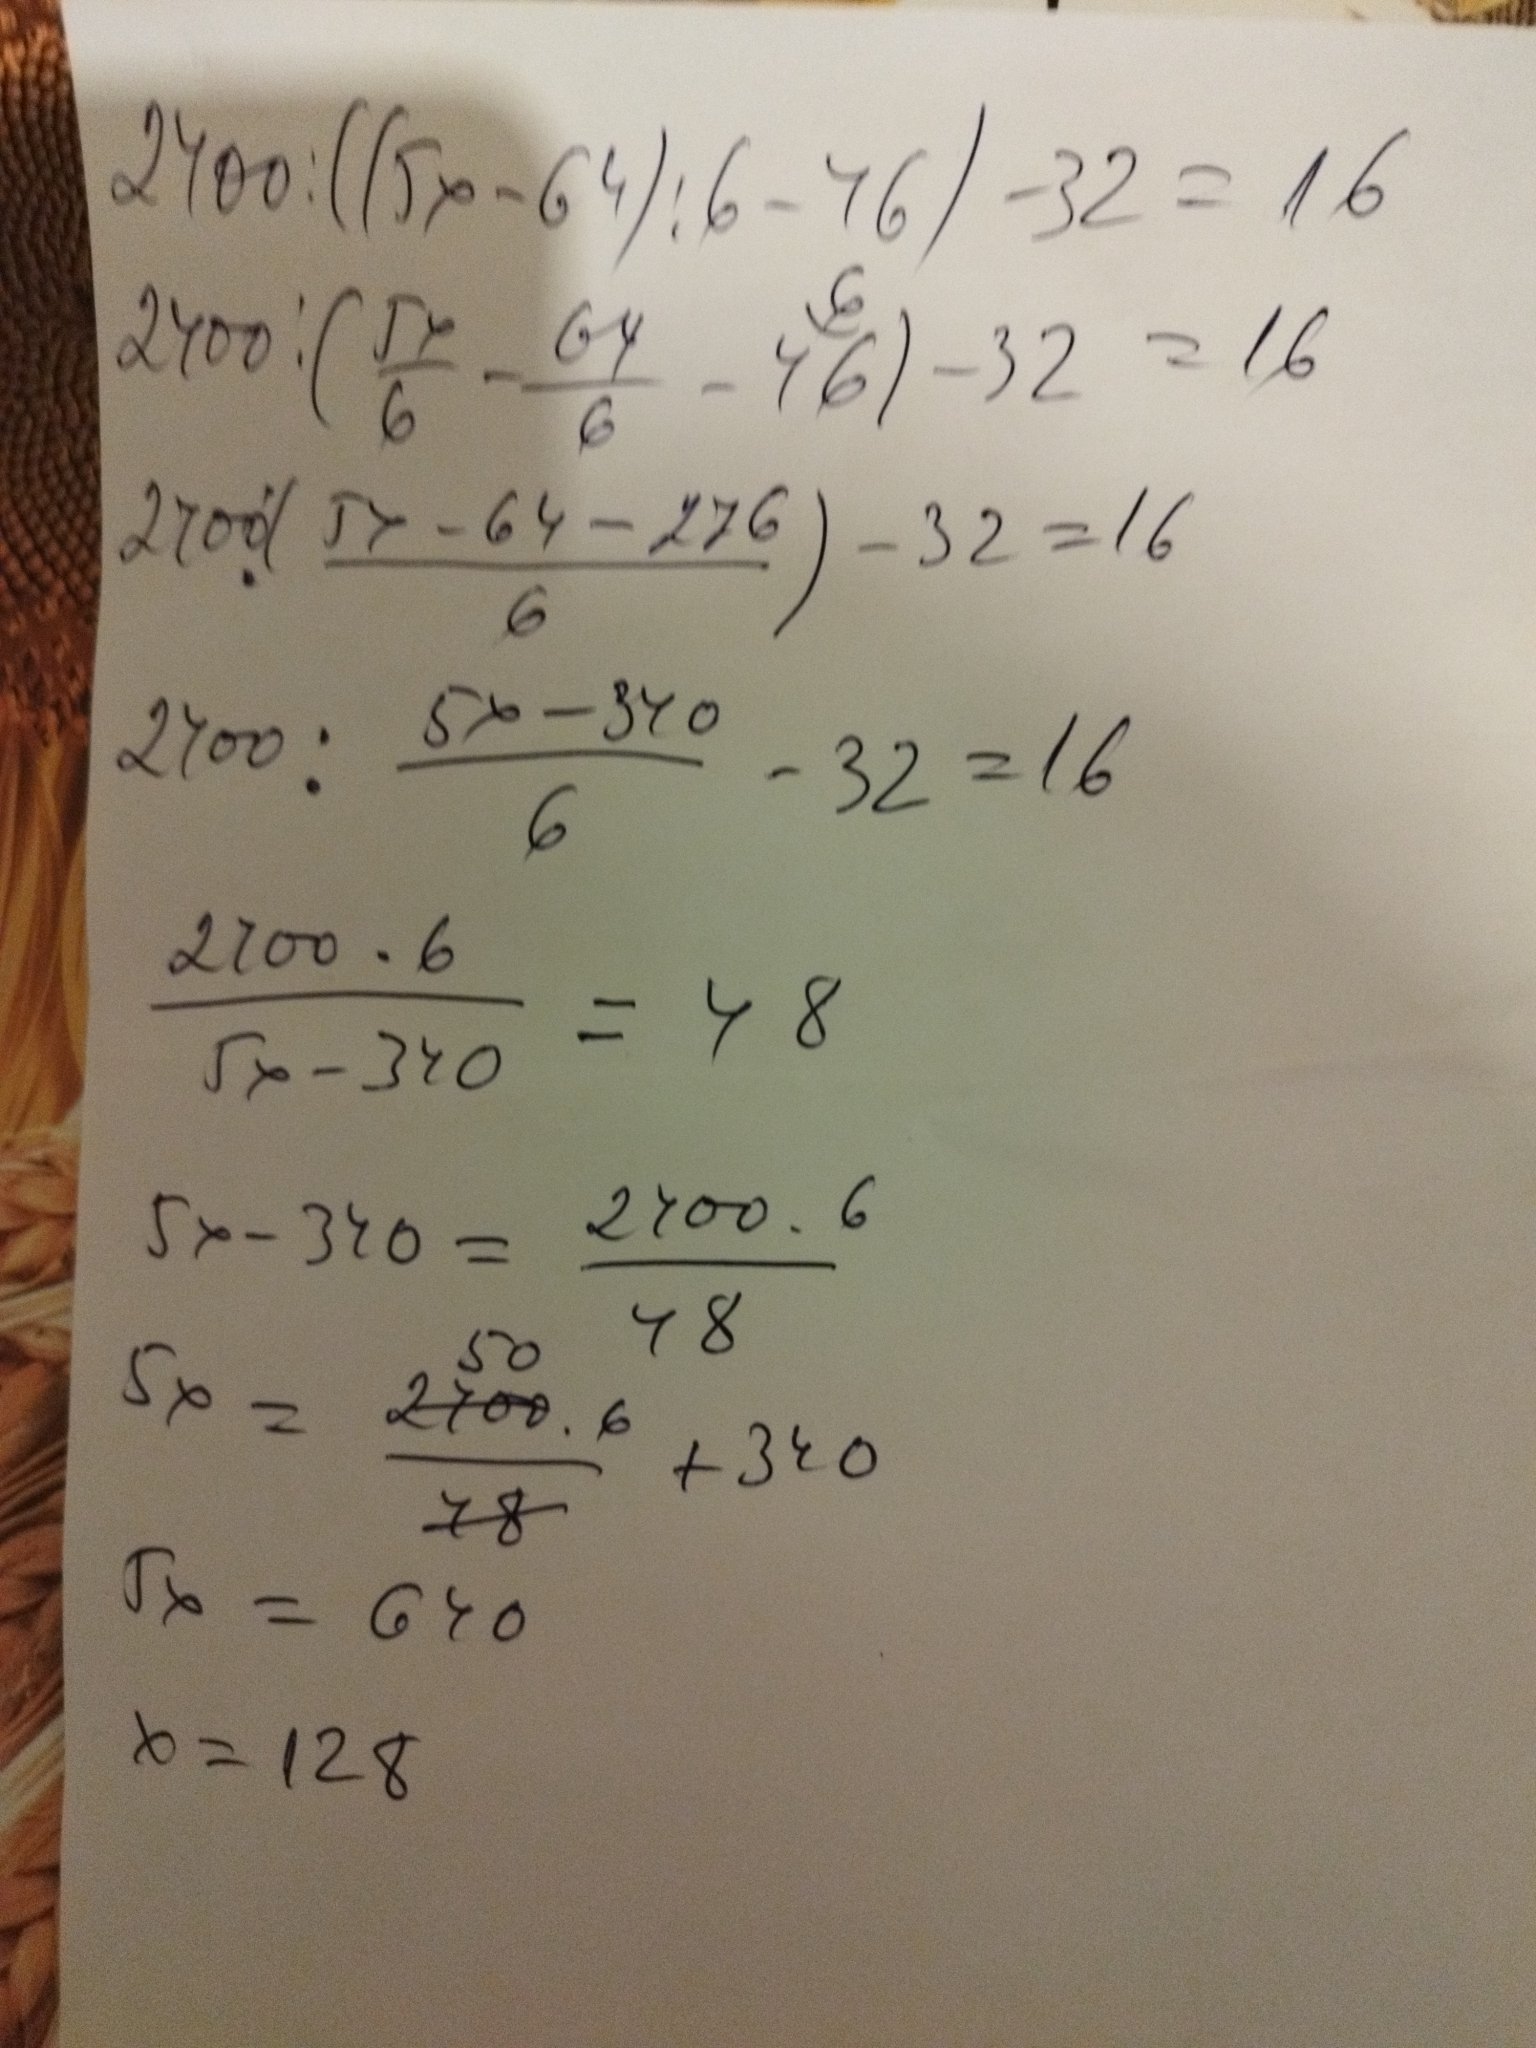 2400:((5x-64):6-46)-32=16
2400:(5x/6 - 64/6 - 46^6)-32=16
2400:((5x-64-276)/6)-32=16
2400: (5x-340)/6 -32=16
(2400·6)/(5x-340) = 48
5x-340 = (2400·6)/48
5x = (2400·6)/48 +340
50
5x = 640
x=128